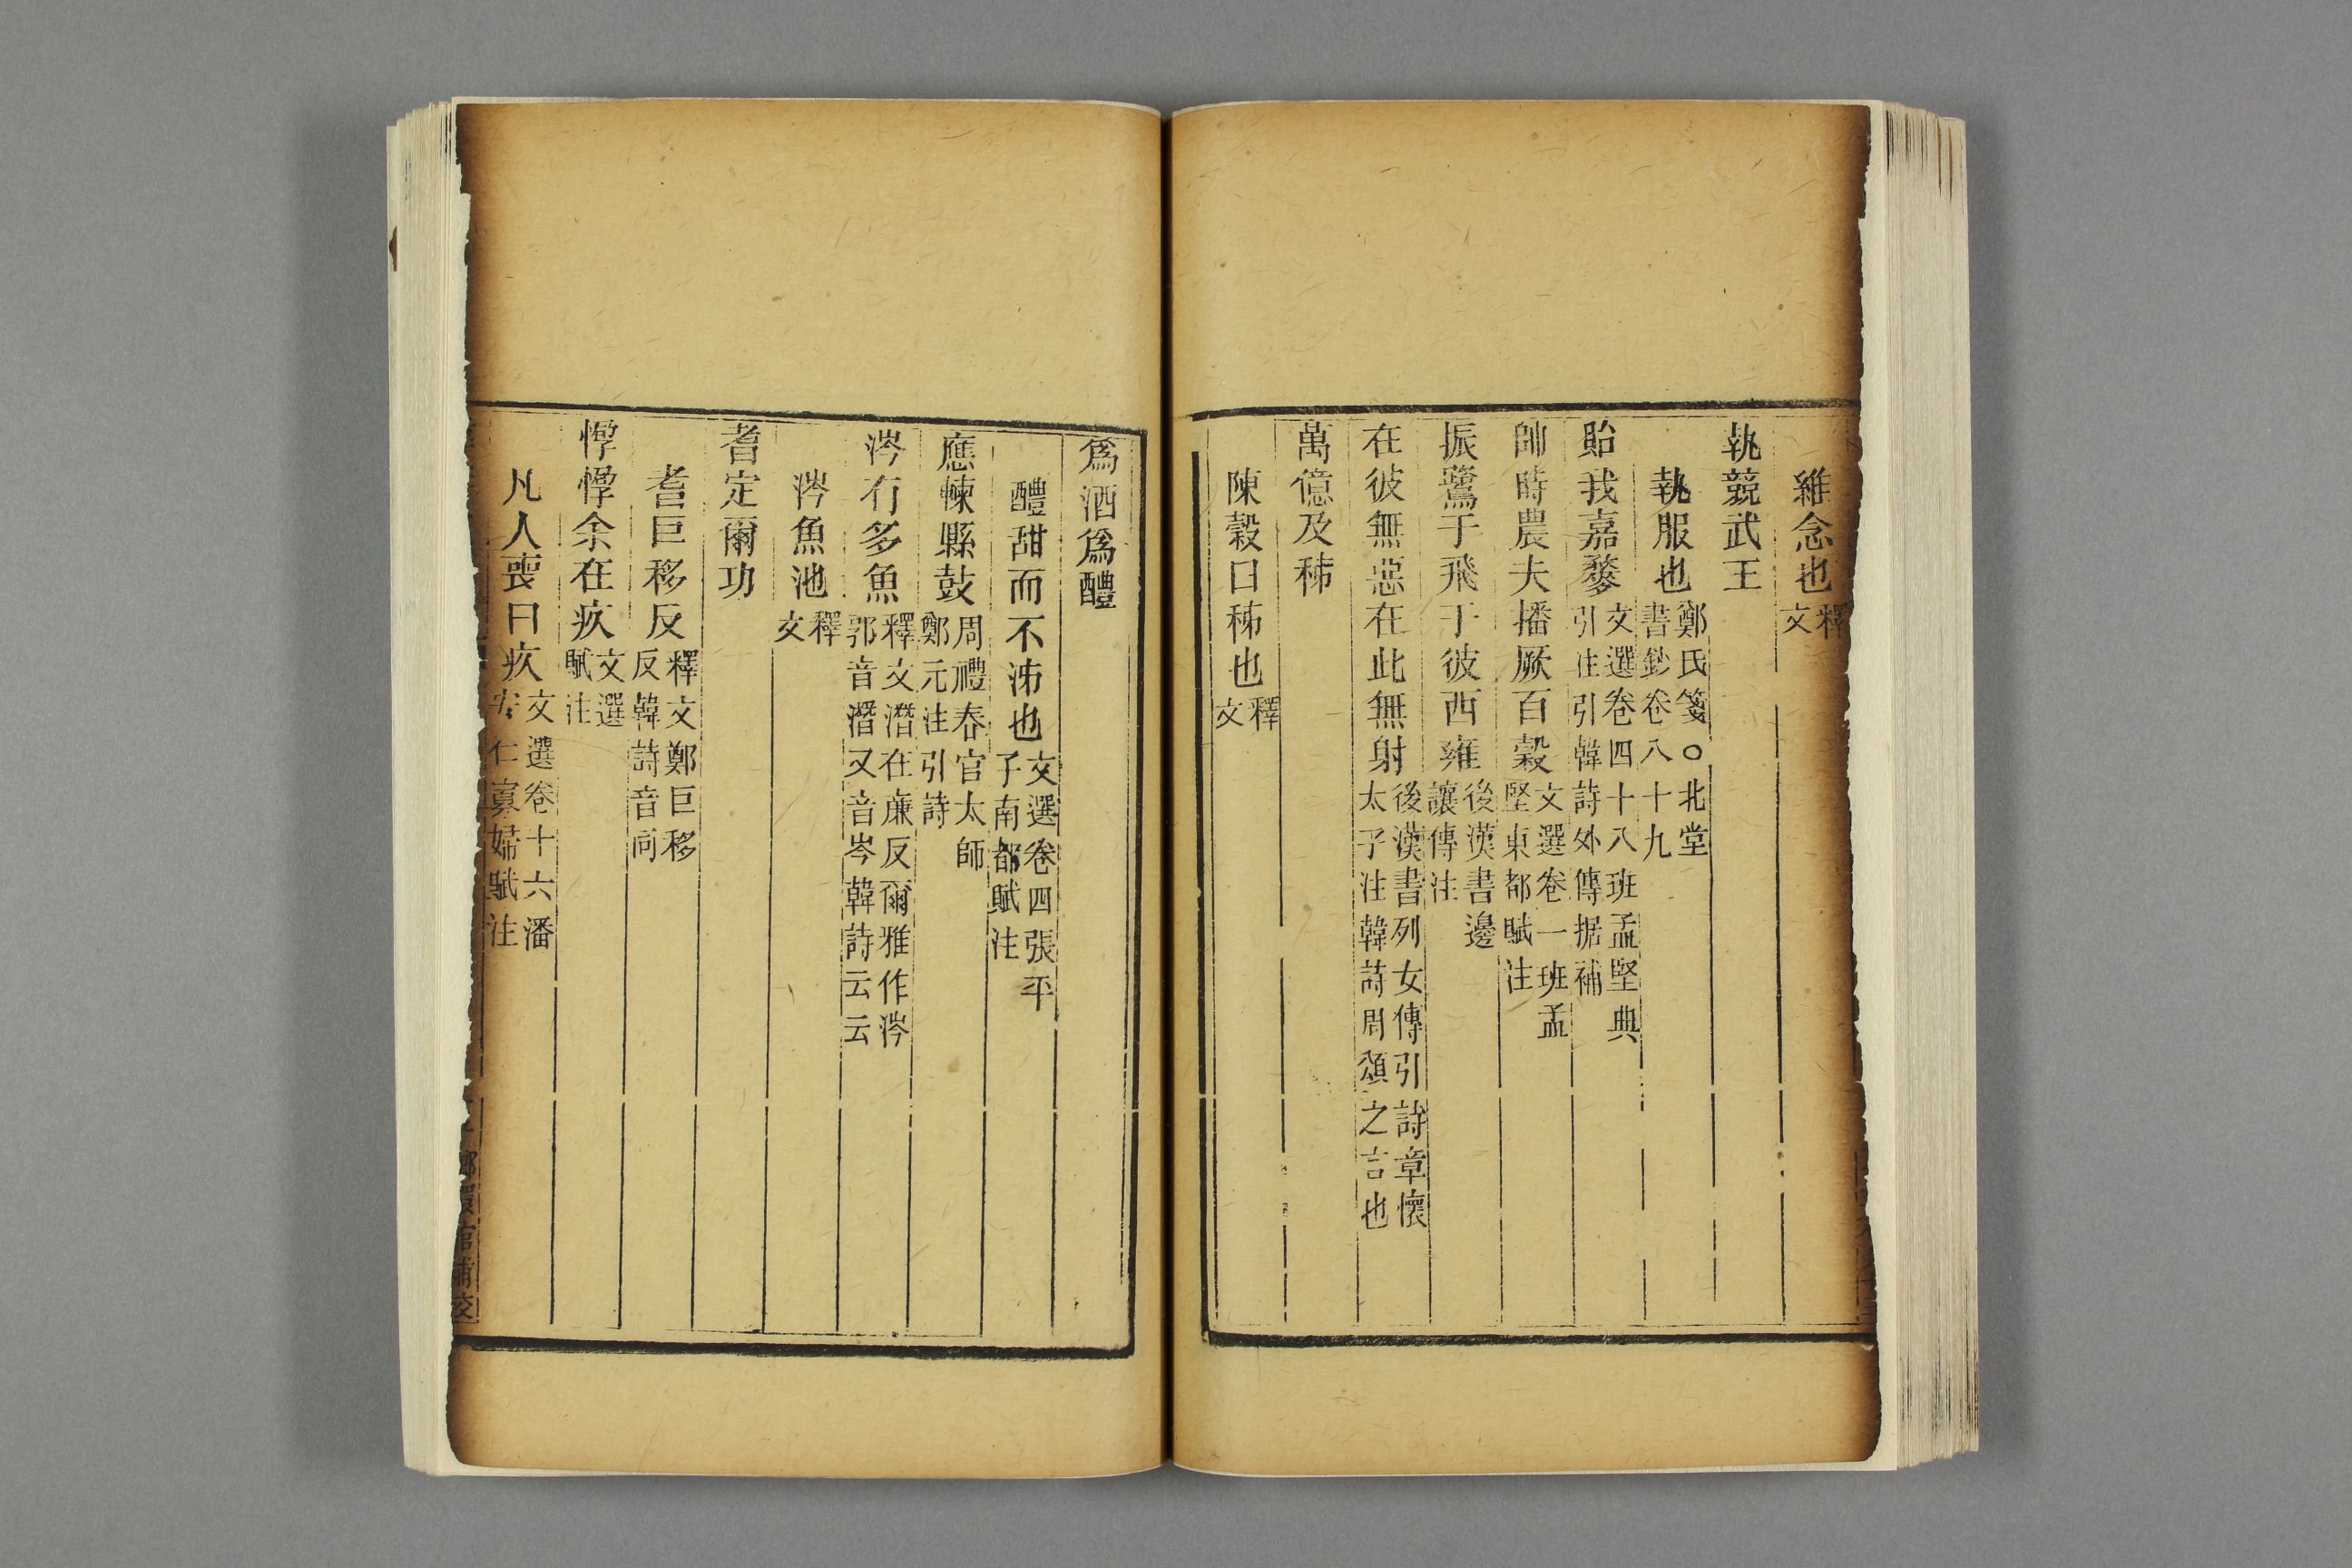 維念也釋文
執競武王
執服也鄭氏箋○北堂書鈔卷八十九
貽我嘉麰文選卷四十八班孟堅典引注引韓詩外傳据補
帥時農夫播厥百穀文選卷一班孟堅東都賦注
振鷺于飛于彼西雍後漢書邊讓傳注
在彼無惡在此無射後漢書列女傳引詩章懷太子注韓詩周頌之言也
萬億及秭
陳穀曰秭也釋文
爲酒爲醴
醴甜而不泲也文選卷四張平子南都賦注
應朄縣鼓周禮春官太師鄭元注引詩
涔有多魚釋文潛在廉反爾雅作涔郭音潛又音岑韓詩云云
涔魚池釋文
耆定爾功
耆巨移反釋文鄭巨移反韓詩音同
惸惸余在疚文選賦注
凡人喪曰疚文選卷十六潘安仁寡婦賦注
館補校